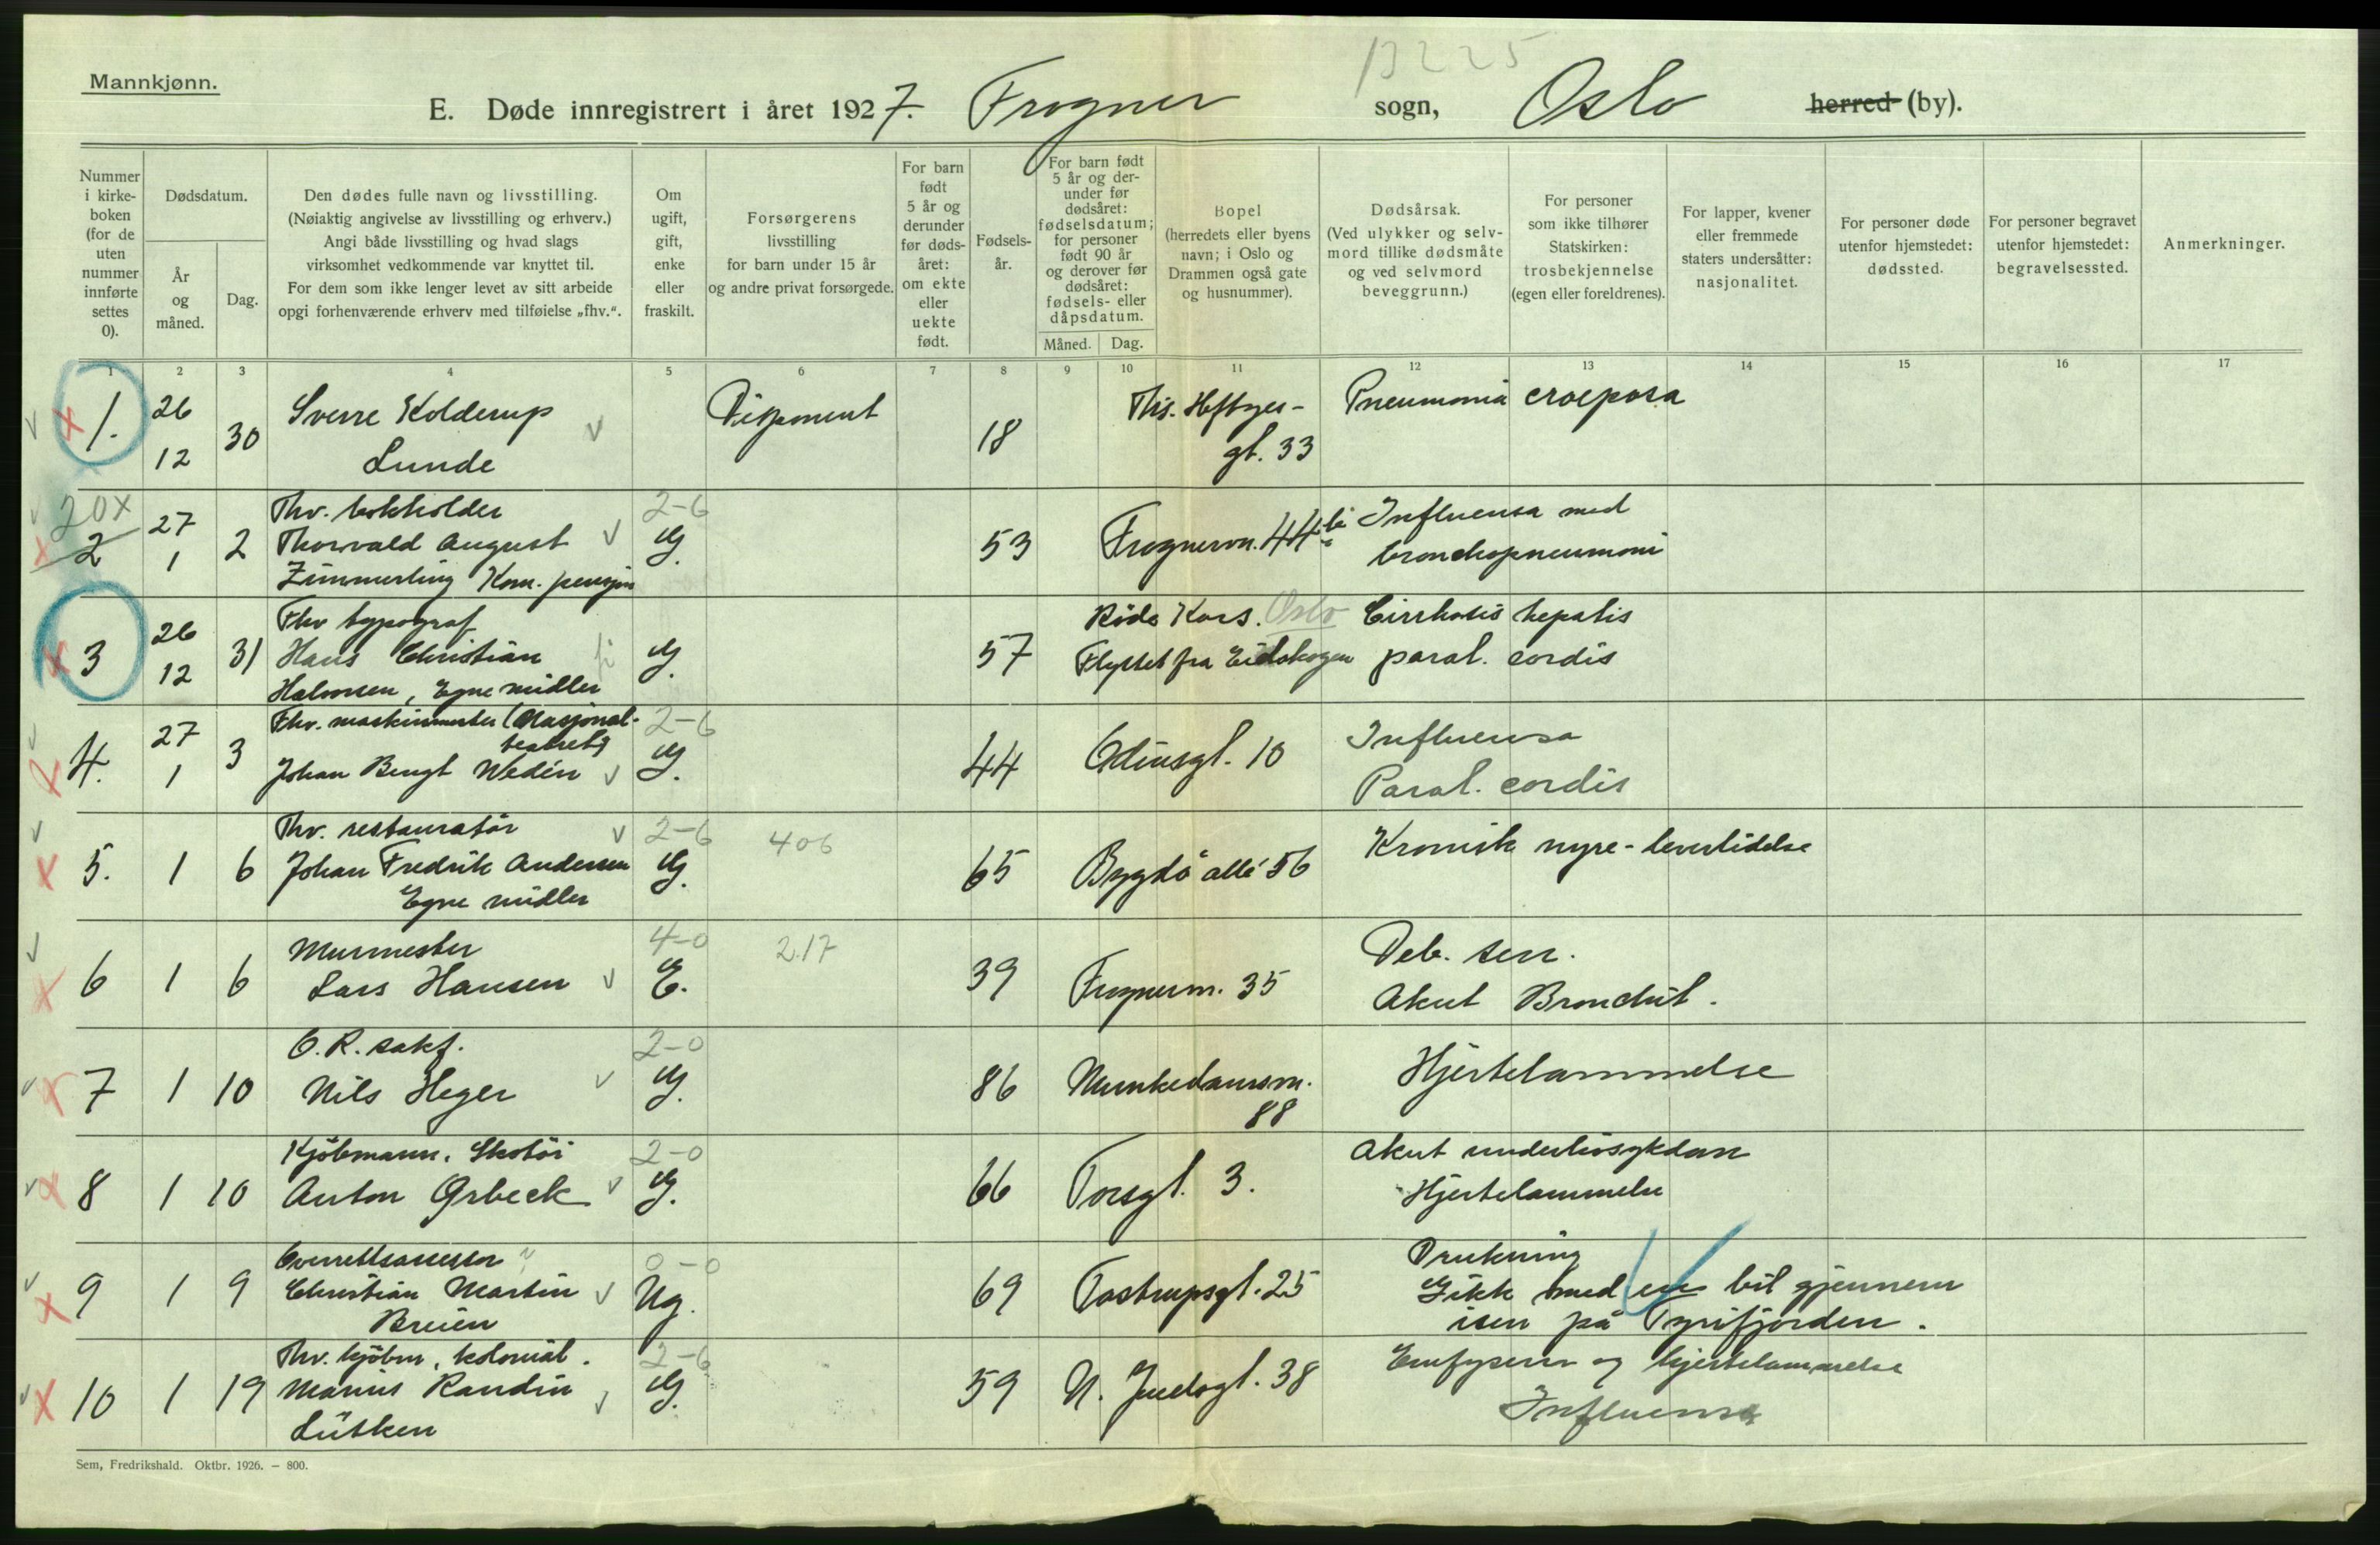 13225
Mannkjønn.
E. Døde innregistrert i året 1927. Frogner sogn, Oslo herred (by).
Nummer i kirke-boken (for de uten nummer innførte settes 0).
Dødsdatum.
År og måned.
Dag.
Den dødes fulle navn og livsstilling.
(Nøiaktig angivelse av livsstilling og erhverv.)
Angi både livsstilling og hvad slags
virksomhet vedkommende var knyttet til.
For dem som ikke lenger levet av sitt arbeide
opgi forhenværende erhverv med tilføielse „fhv.“.
Om ugift, gift, enke eller fraskilt.
Forsørgerens livsstilling
for barn under 15 år
og andre privat forsørgede.
For barn født 5 år og derunder før døds-året: om ekte eller uekte født.
Fødsels-år.
For barn født 5 år og der-under før dødsåret: fødselsdatum; for personer født 90 år og derover før dødsåret: fødsels- eller dåpsdatum.
Måned. Dag.
Bopel
(herredets eller byens
navn; i Oslo og
Drammen også gate
og husnummer).
Dødsårsak.
(Ved ulykker og selv-
mord tillike dødsmåte
og ved selvmord
beveggrunn.)
For personer
som ikke tilhører
Statskirken:
trosbekjennelse
(egen eller foreldrenes).
For lapper, kvener
eller fremmede
staters undersåtter:
nasjonalitet.
For personer døde
utenfor hjemstedet:
dødssted.
For personer begravet
utenfor hjemstedet:
begravelsessted.
Anmerkninger.
1 2 3 4 5 6 7 8 9 10 11 12 13 14 15 16 17
1. 26 12 30 Sverre Kolderup Lunde Disponent 18 Ths. Heftyes-gt. 33 Pneumonia croeposa
20x
2 27 1 2 Fhv. bokholder 2-6
Thorvald August G. 53 Frognervn. 44 Influensa med
Zimmerling Kom. pensjon bronchopneumoni
3 26 12 31 Fhv typograf Røde Kors. Oslo Cirrhosis hepatis
Hans Christian G. 57 Flyttet fra Eidskogen paral. cordis
Halvorsen, Egne midler
4. 27 1 3 Fhv. maskinmester (Nasjonal-teatret) 2-6
Johan Bengt Wedén G. 44 Odinsgt. 10 Influensa
Paral. cordis
5. 1 6 Fhv. restauratør 2-6 406
Johan Fredrik Andersen G. 65 Bygdø allé 56 Kronisk nyre-leverlidelse
Egne midler
6 1 6 Murmester 4-0 217
Lars Hansen E. 39 Frognervn. 35 Deb. sen.
Akut Bronchit.
7 1 10 O.R. sakf. 2-0
Nils Heger G. 86 Munkedamsvn. 88 Hjertelammelse
8 1 10 Kjøbmann. Skotøi 2-0
Anton Ørbeck G. 66 Torsgt. 3. Akut underlivssykdom
Hjertelammelse
9 1 9 Overrettsassessor 0-0
Christian Martin Ug. 69 Tostrupsgt. 25 Drukning
Breien Gikk med en bil gjennem
isen på Tyrifjorden.
10 1 19 Fhv. kjøbm, kolonial. 2-6
Marius Randin G. 59 N. Juelsgt. 38 Emfysem og hjertelammelse
Lütken Influensa
Sem, Fredrikshald. Oktbr. 1926. – 800.